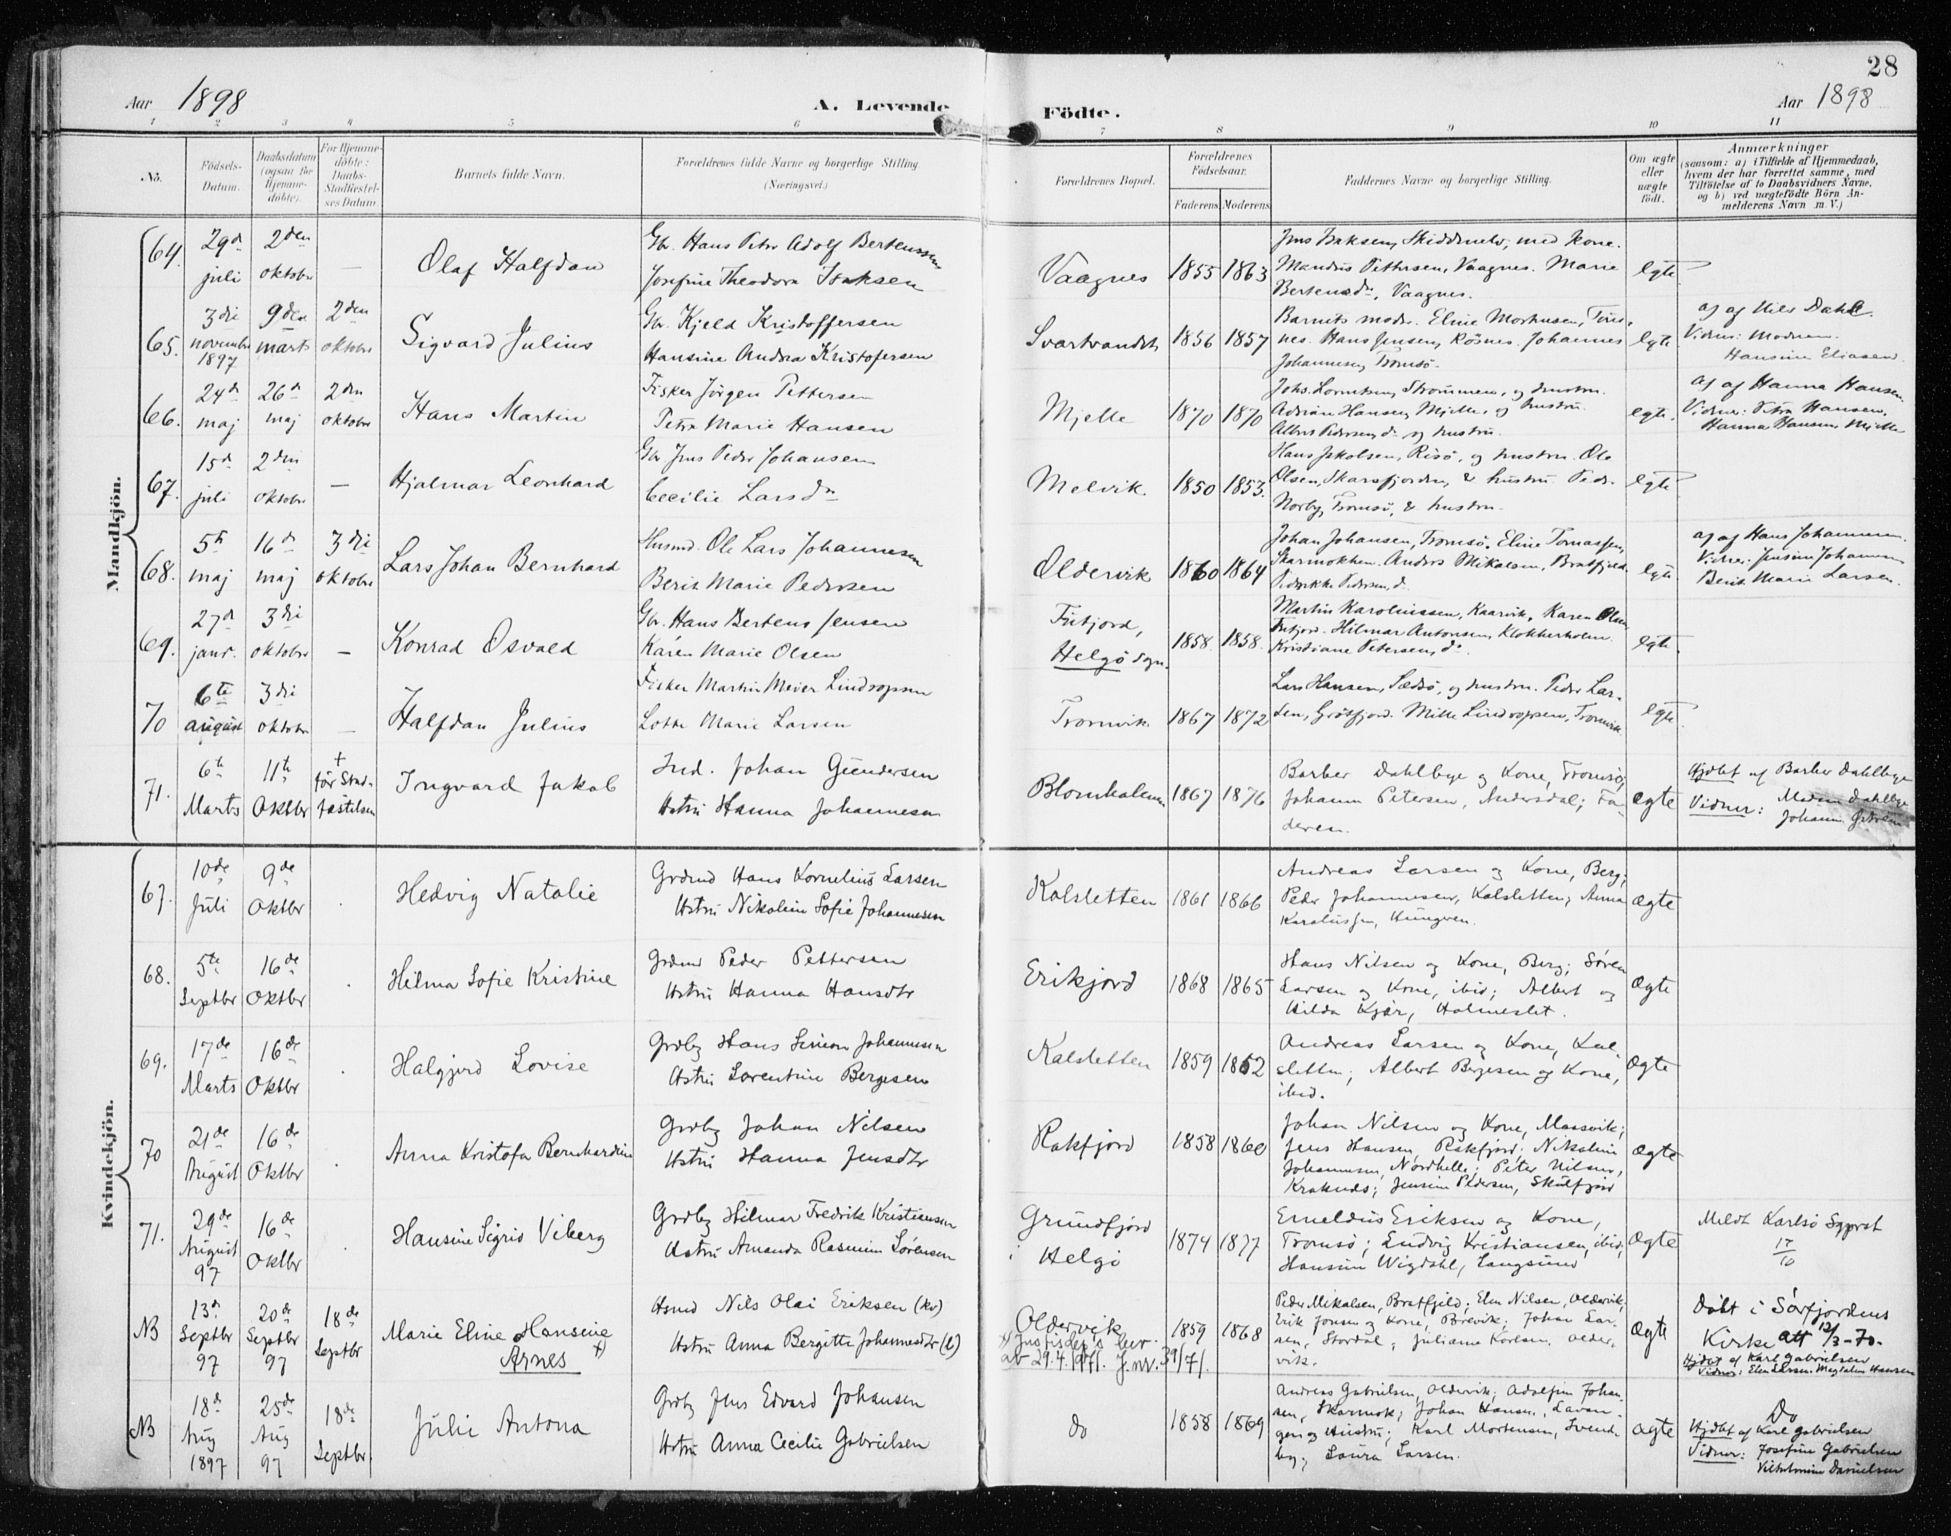 28
Aar 1898
A. Levende Födte.
Aar 1898
1 2 3 4 5 6 7 8 9 10 11
No.
Födsels-Datum.
Daabsdatum (ogsaa for Hjemme-döbte).
For Hjemme-döbte: Daabs-Stadfæstel-ses Datum
Barnets fulde Navn.
Forældrenes fulde Navne og borgerlige Stilling
(Næringsvei.)
Forældrenes Bopæl.
Forældrenes Födselsaar.
Faderens
Moderens
Faddernes Navne og borgerlige Stilling.
Om ægte eller uægte födt.
Anmærkninger
(saasom: a) i Tilfælde af Hjemmedaab,
hvem der har forrettet samme, med
Tilföielse af to Daabsvidners Navne,
og b) ved uægtefödte Börn An-
melderens Navn m. V.)
Mandkjön.
64. 29d juli 2den oktober — Olaf Halfdan
Gbr. Hans Petr Adolf Bertenssen
Josefine Theodora Isaksen
Vaagnes 1855 1863
Jens Isaksen, Skiddnelv, med kone.
Mandus Pettersen, Vaagnes. Marie
Bertensdn, Vaagnes.
egte
65. 3die november 1897 9den marts 2den oktober Sigvard Julius
Gbr. Kjeld Kristoffersen
Hansine Andrea Kristofersen
Svartvandet 1856 1857
Barnets moder. Eline Mortensen, Tøns-
nes. Hans Jensen, Røsnes. Johannes
Johannesen, Tromsø.
egte
af Nils Dahl.
Vidner: Moderen.
Hansine Eliasen.
66. 24d maj 26d maj 2den oktober Hans Martin
Fisker Jørgen Pettersen
Petra Marie Hansen
Mjelle 1870 1870
Johs. Lorentsen, Strømmen, og hustru.
Adrian Hansen, Mjelle, og hustru.
Albert Pedersen, do og hustru.
egte.
af Hanna Hansen.
Vidner: Petra Hansen,
Hanna Hansen, Mjelle
67. 15d juli 2den oktober — Hjalmar Leonhard
Gbr Jens Peder Johansen
Cecilie Larsdn
Melvik. 1850 1853.
Hans Jakobsen, Risø, og hustru. Ole
Olsen, Skarsfjorden, & hustru. Peder
Norby, Tromsø, & hustru.
egte
68. 5te maj 16d maj 3die oktober Lars Johan Bernhard
Husmd. Ole Lars Johannesen
Berit Marie Pedersen
Oldervik 1860 1864
Johan Johansen, Tromsø. Eline Tomassen,
Skarmokken. Anders Mikalsen, Bratfjeld.
egte
af Hans Johannesen.
Vidner: Jensine Johannesen
Berit Marie Larsen.
69. 27d janr. 3die oktober — Konrad Osvald
Gbr. Hans Bertens Jensen
Karen Marie Olsen
Futjord, Helgø sogn. 1858. 1858.
Martin Karoliussen, Kaarvik, Karen Olsen
Futjord. Hilmar Antonsen, Klokkerholm.
Kristiane Petersen, do.
egte.
70 6te august 3die oktober — Halfdan Julius
Fisker Martin Meier Lindrupsen
Lotte Marie Larsen
Tromvik 1867 1872
Lars Hansen, Sedsø, og hustru. Peder Lar-
sen, Grøtfjord. Mille Lindrupsen, Tromvik.
egte.
71. 6te Marts 11te Oktbr + før Stad-fæstelsen Ingvard Jakob
Ind. Johan Gundersen
Hstru Hanna Johannesen
Blomholmen 1867 1876
Barber Dahlbye og Kone, Tromsø;
Johann Petersen, Andersdal; Fa-
deren.
ægte
Hjdbt af Barber Dahlbye
Vidner: Madam Dahlbye
Kvindekjön.
67. 10de Juli 9de Oktbr Hedvig Natalie
Grdmd Hans Kornelius Larsen
Hstru Nikoline Sofie Johannesen
Kalsletten 1861 1866
Andreas Larsen og Kone, Berg;
Peder Johannesen, Kalsletten; Anna
ægte
68. 5te Septbr 16de Oktbr Hilma Sofie Kristine
Grdmd Peder Pettersen
Hstru Hanna Hansdtr
Erikjord 1868 1865
Hans Nilsen og Kone, Berg; Søren
Larsen og Kone, ibid; Albert og
Hilda Kjær, Holmeslet.
ægte
69. 17de Marts 16de Oktbr Halgjerd Lovise
Grdbg Hans Simon Johannesen
Hstru Lorentine Bergesen
Kalsletten 1859 1862
Andreas Larsen og Kone, Kal-
sletten; Albert Bergesen og Kone,
ibid.
ægte
70 21de August 16de Oktbr Anna Kristofa Bernhardine
Grdbg Johan Nilsen
Hstru Hanna Jensdtr
Rakfjord 1858 1860
Johan Nilsen og Kone, Maasvik;
Jens Hansen, Rakfjord; Nikoline
Johannesen, Nordhella; Peter Nilsen,
Kraknes; Jensine Pedersen, Skulfjord
ægte
71. 29de August 97 16de Oktbr Hansine Sigrid Viberg
Grdbg Hilmar Fredrik Kristiansen
Hstru Amanda Rasmine Sørensen
Grundfjord i Helgø 1874 1877
Emeldius Eriksen og Kone,
Tromsø; Ludvig Kristiansen, ibid;
Hansine Wigdahl, Langsund
ægte
Meldt Karlsø Sgprst
17/10
NB 13de Septbr 97 20de Septbr 97 18de Septbr Marie Eline Hansine x)
Arnes
Hsmd Nils Olai Eriksen (kv)
Hstru Anna Bergitte Johannesdtr (l)
Oldervik
x) Justisdep's bev.
av 29.4.1971. J.nr. 39/71.
1859 1868
Peder Mikalsen, Bratfjeld; Elen Nilsen, Oldervik;
Erik Jonsen og Kone, Breivik; Johan Lar-
sen, Stordal; Julianne Karlsen, Older-
vik.
ægte
Døbt i Sørfjordens
Kirke att 12/3-70.
Hjdbt af Karl Gabrielsen
Vidner: Elen Larsen. Magdalene Hansen
NB 18de Aug 1897 25de Aug 97 18de Septbr Julie Antona
Grdbg Jens Edvard Johansen
Hstru Anna Cecilie Gabrielsen
do 1858 1869
Andreas Gabrielsen, Oldervik; Adolfine Johan-
sen, Skarmok; Johan Hansen, Lavan-
gen og Hustru; Karl Mortensen, Svend-
by; Laura Larsen.
ægte
Do
Hjdbt af Karl Gabrielsen
Vidner: Josefine Gabrielsen
Vilhelmine Danielsen